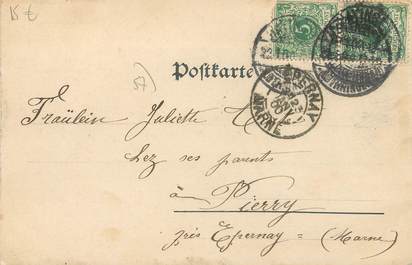 15 €
5
57)
Postkarte
EPERNAY
MARNE
Fräulein Juliette
Lez ses parents
à Pierry
près Epernay = (Marne)